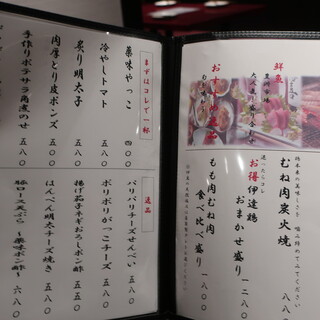 まずはコレで一杯
薬味やっこ 四〇〇
冷やしトマト 五八〇
炙り明太子 五八〇
肉厚とり皮ポンズ 五八〇
手作りポテサラ角煮のせ 五八〇
逸品
パリパリチーズせんべい 五八〇
ポリポリがっこチーズ 五八〇
揚げ茄子ネギおろしポン酢 五五〇
はんぺん明太チーズ焼き 五八〇
豚ロース天ぷら ～薬味ポン酢～ 六八〇
鮮鶏
むね肉炭火焼 八八〇
迷ったらコレ
お得 伊達鶏
おまかせ盛り 一二八〇
もも肉むね肉
食べ比べ盛り 一八〇〇